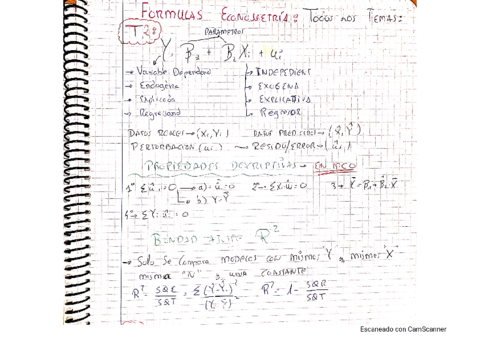 FORMULAS ECONOMETRÍA: TODOS LOS TEMAS:
T2:
PARAMETROS
Y = B₁ + B₂Xᵢ + uᵢ
→ Variable Dependiente → INDEPENDIENT
→ Endogena → EXOGENA
→ Explicada → EXPLICATIVA
→ Regresand → REGRESOR
DATOS REALES → (Xᵢ, Yᵢ) DATOS PREDICIDOS → (X̂, Ŷ)
PERTURBACIÓN (uᵢ) → RESIDUO/ERROR → (ûᵢ)
PROPIEDADES DESCRIPTIVAS → EN MCO
1º Σûᵢ = 0 → a) û̄ = 0 2 → ΣXᵢûᵢ = 0
↳ b) Ȳ = Ŷ
4 → ΣŶᵢûᵢ = 0
BONDAD AJUSTE R²
→ Solo Se compara modelos con misma "Y", mismas "X"
misma "N" y una CONSTANTE
R² = SQE/SQT R² = 1 - SQR/SQT
Escaneado con CamScanner